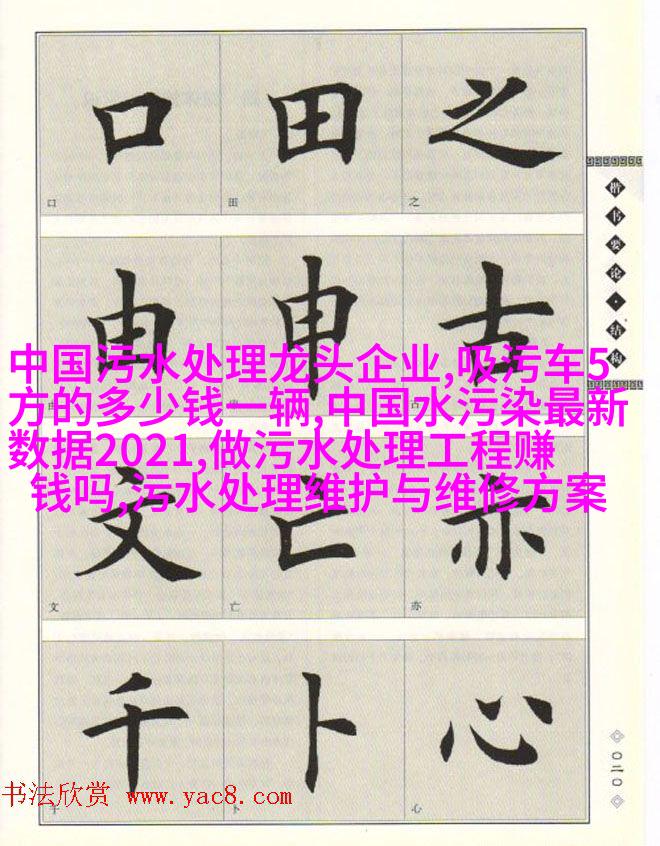 口 田 之
口 田 之
楷书要论·结构
由 申 古
中国污水处理龙头企业,吸污车5
方的多少钱一辆,中国水污染最新
数据2021,做污水处理工程赚
钱吗,污水处理维护与维修方案
文 亡 亦
文 亡 亦
千 卜 心
千 卜 心
〇二〇
书法欣赏 www.yac8.com